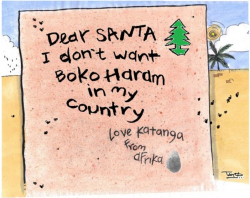 Dear SANTA
I don't want
BOKO HARAM
in my
country
love katanga
from
afrika